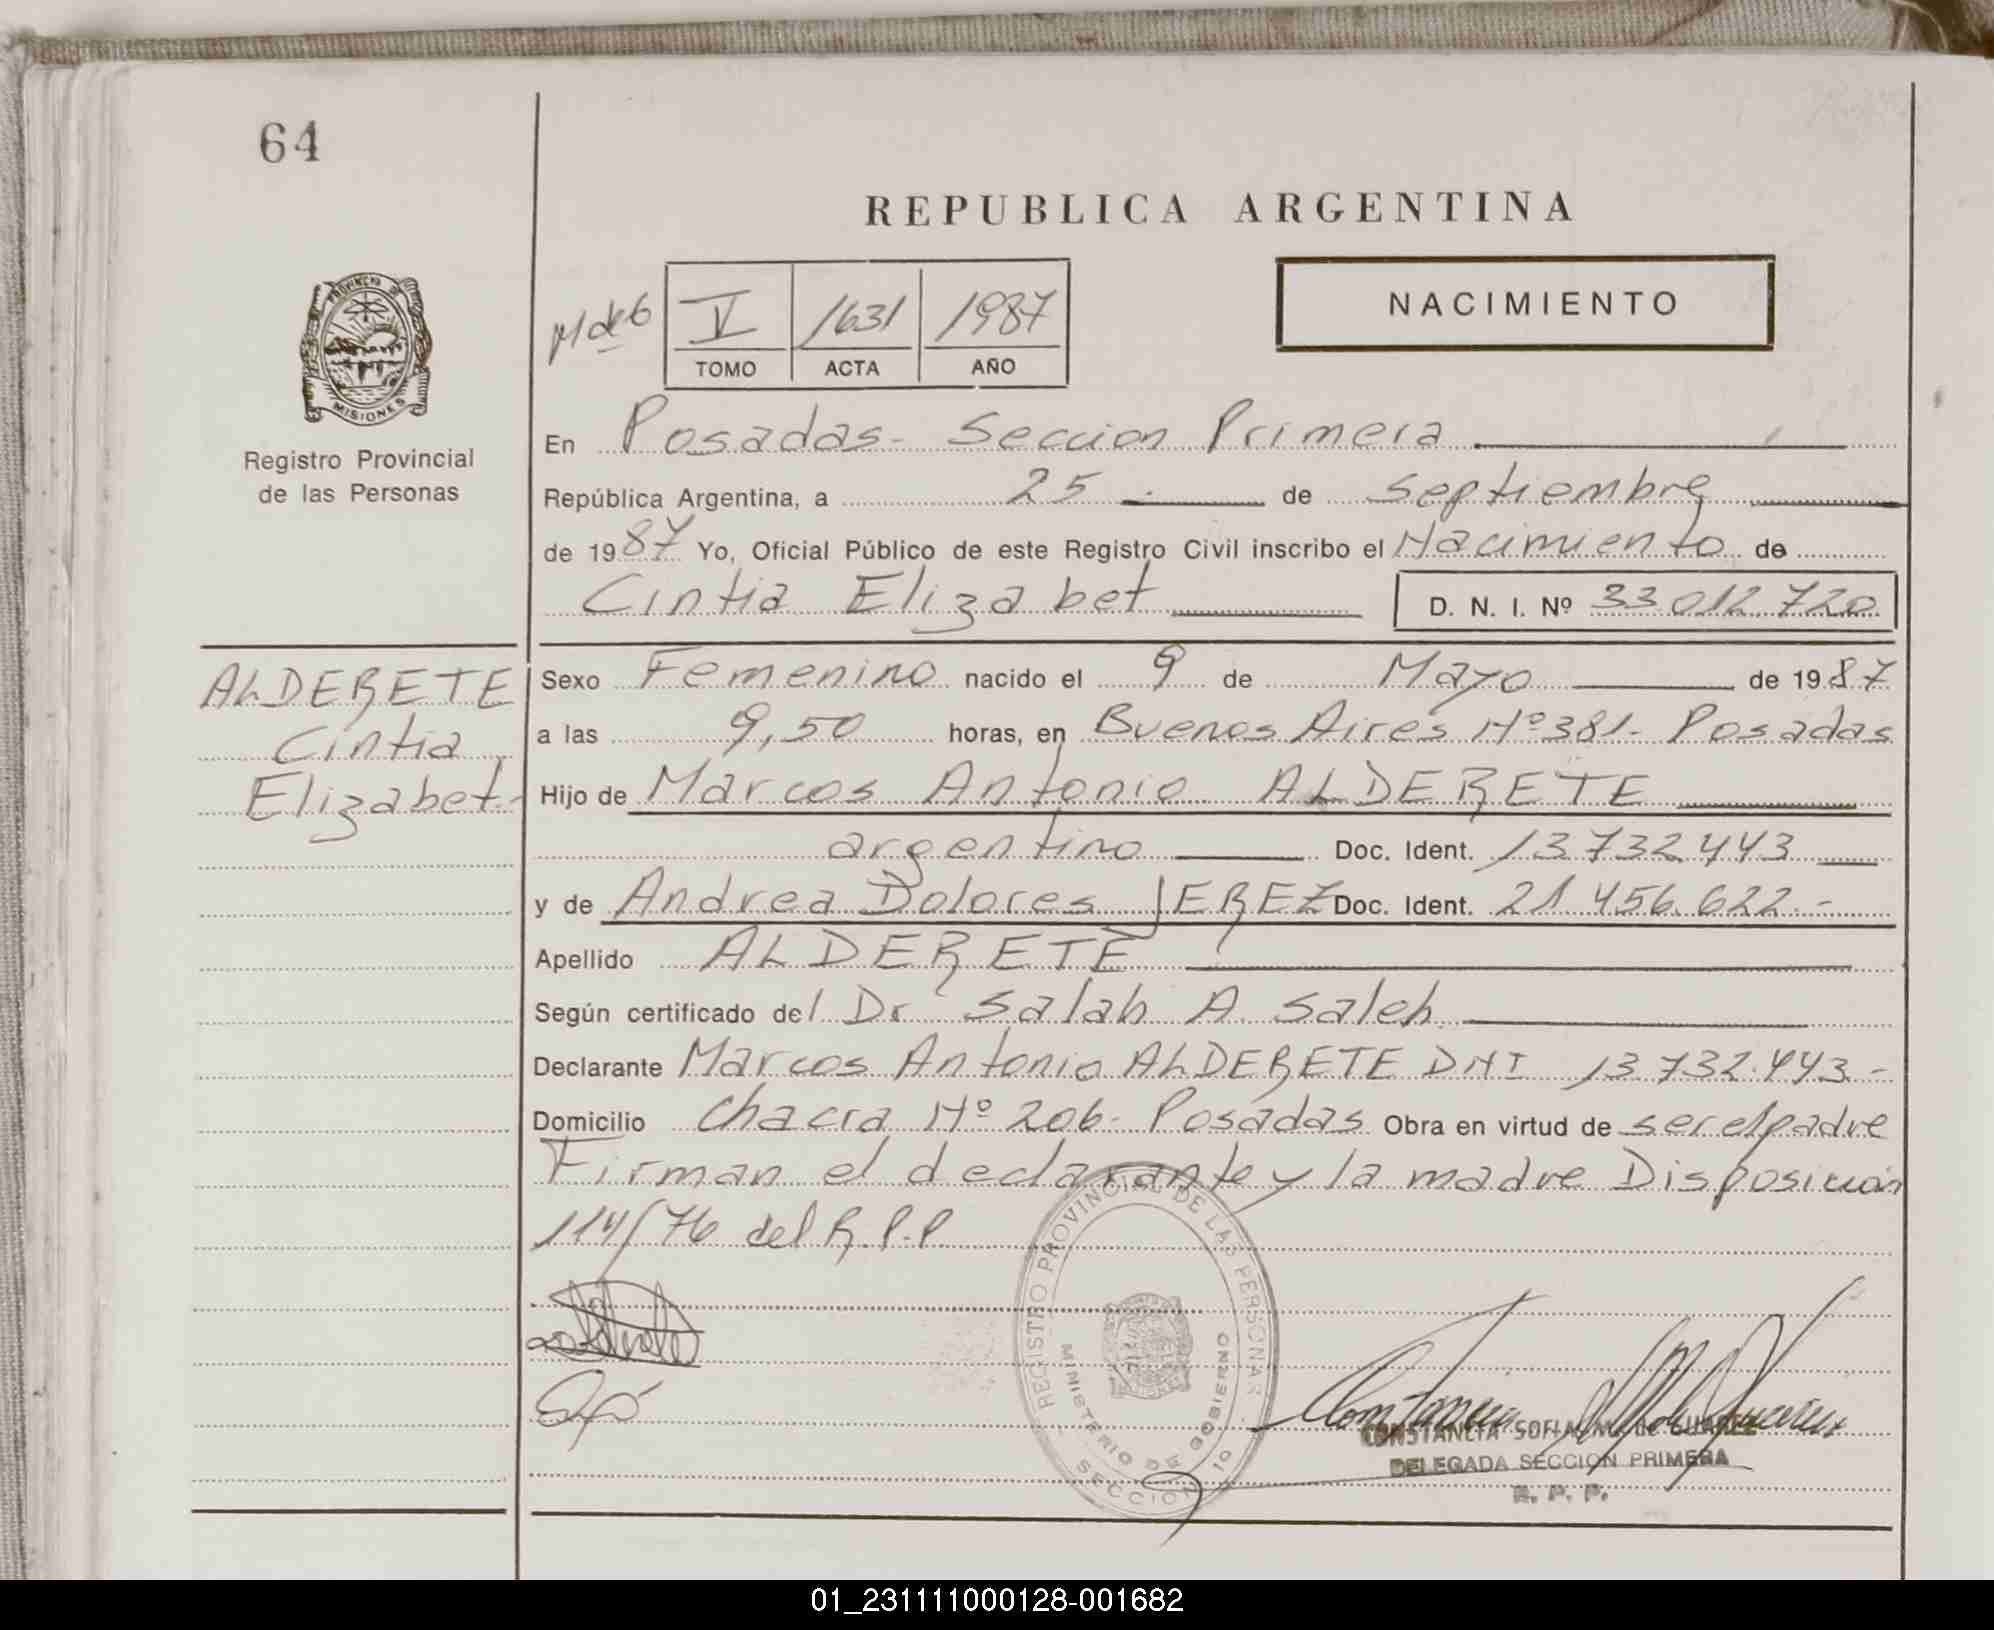 64
REPUBLICA ARGENTINA
NACIMIENTO
V 1631 1987
TOMO ACTA AÑO
PROVINCIA DE
MISIONES
Registro Provincial
de las Personas
En Posadas - Seccion Primera
República Argentina, a 25 - de Septiembre
de 1987 Yo, Oficial Público de este Registro Civil inscribo el Nacimiento de
Cintia Elizabet D. N. I. Nº 33 012.720
ALDERETE
Cintia
Elizabet-
Sexo Femenino nacido el 9 de Mayo de 1987
a las 9,50 horas, en Buenos Aires Nº 381- Posadas
Hijo de Marcos Antonio ALDERETE
argentino Doc. Ident. 13.732.443
y de Andrea Dolores JEREZ Doc. Ident. 21.456.622.-
Apellido ALDERETE
Según certificado del Dr Salah A. Saleh
Declarante Marcos Antonio ALDERETE DNI 13.732.443.-
Domicilio Chacra Nº 206- Posadas Obra en virtud de ser el padre
Firman el declarante y la madre Disposicion
114/76 del R.P.P
REGISTRO PROVINCIAL DE LAS PERSONAS
MINISTERIO DE GOBIERNO
SECCION 1º
CONSTANCIA SOFIA
DELEGADA SECCION PRIMERA
R. P. P.
01_231111000128-001682